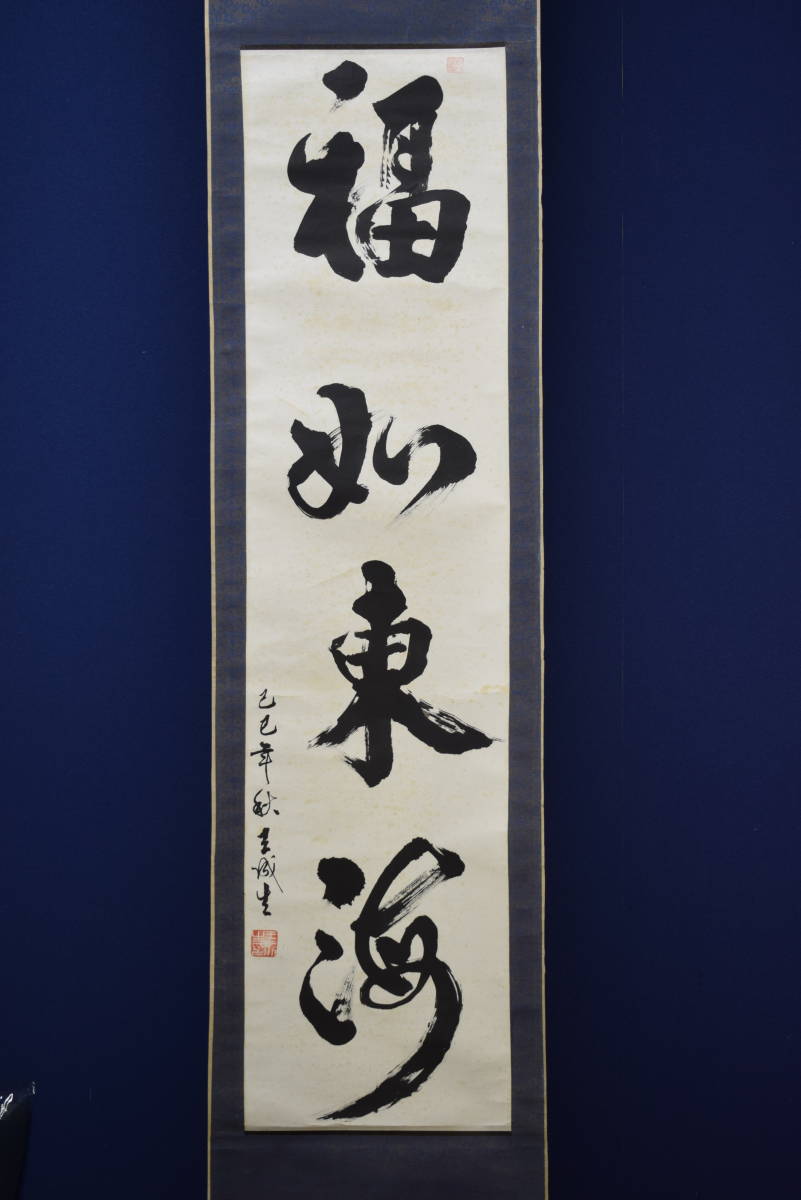 福如東海
己巳年秋 圭成生